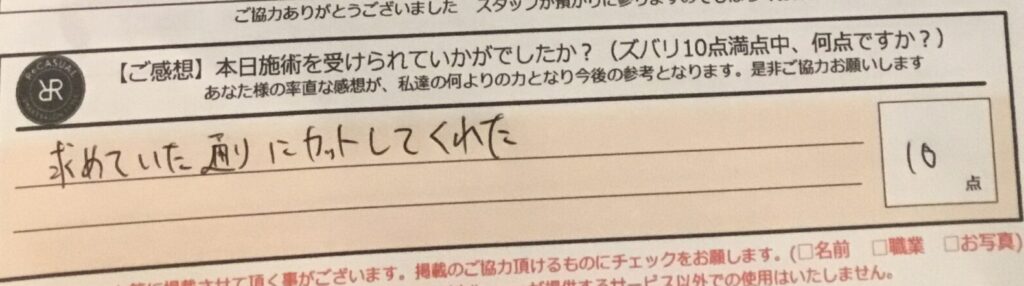 ご協力ありがとうございました スタッフが預かりに参りますので
【ご感想】本日施術を受けられていかがでしたか？（ズバリ10点満点中、何点ですか？）
あなた様の率直な感想が、私達の何よりの力となり今後の参考となります。是非ご協力お願いします
ReCASUAL
R
求めていた通りにカットしてくれた
10
点
掲載させて頂く事がございます。掲載のご協力頂けるものにチェックをお願します。(□名前 □職業 □お写真)
が提供するサービス以外での使用はいたしません。